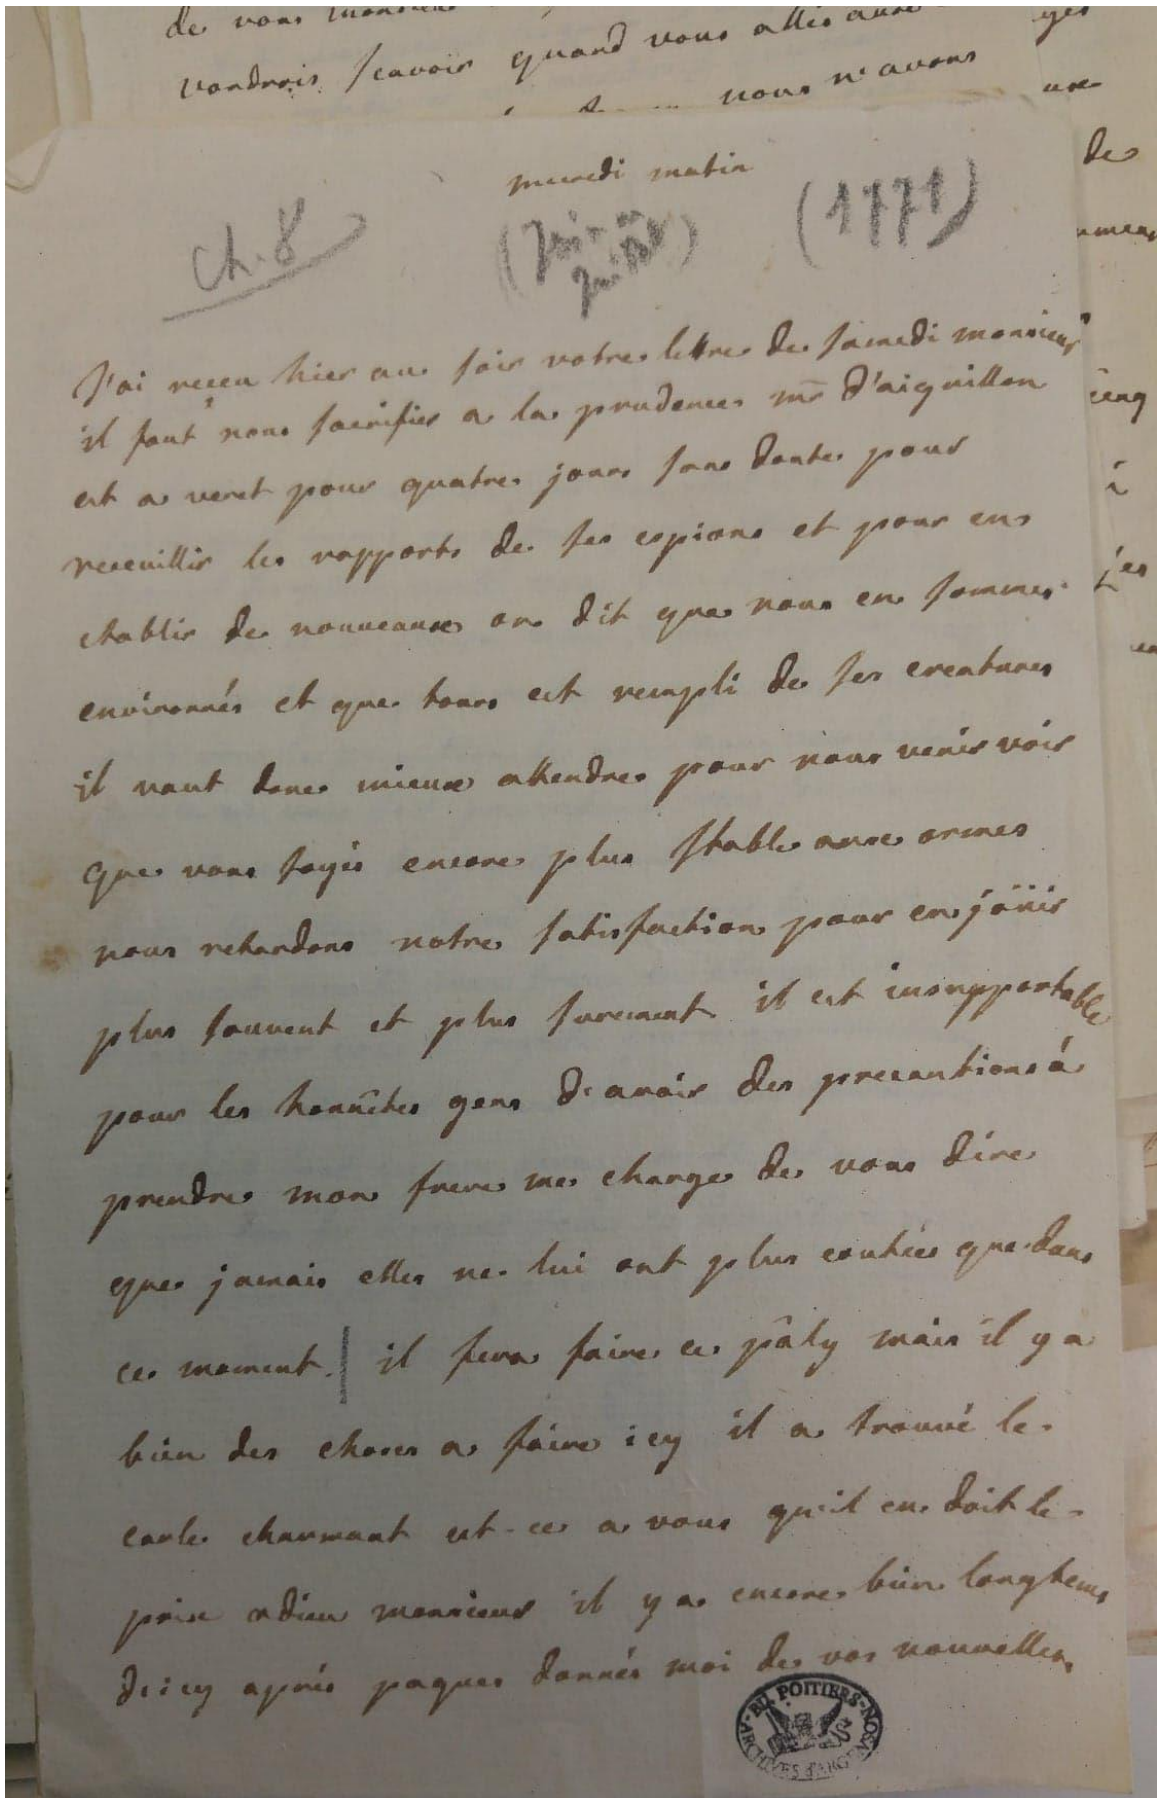 de vous monsieur
voudrois scavoir quand vous allés aux
nous n'avons
yes
ux
de
mercredi matin
ch. 8
(Juin ou
Juillet)
(1771)
J'ai receu hier au soir votre lettre de samedi monsieur
il faut nous sacrifier a la prudence mr d'aiguillon
est a veret pour quatre jours sans doute pour
receuillir les rapports de ses espions et pour en
etablir de nouveaux on dit que nous en sommes
environnés et que tours est rempli de ses creatures
il vaut donc mieux attendre pour nous venir voir
que vous soyés encore plus stable aux ormes
nous retardons notre satisfaction pour en joüir
plus souvent et plus surement il est insupportable
pour les honnêtes gens d'avoir des precautions à
prendre mon frere me charge de vous dire
que jamais elles ne lui ont plus coutées que dans
ce moment. il fera faire ce pâty mais il y a
bien des choses a faire icy il a trouvé le
conte charmant est-ce a vous qu'il en doit le
prix adieu monsieur il y a encore bien longtems
d'icy aprés paques donnés moi de vos nouvelles
BU. POITIERS-NOSA
ARCHIVES d'ARGEN